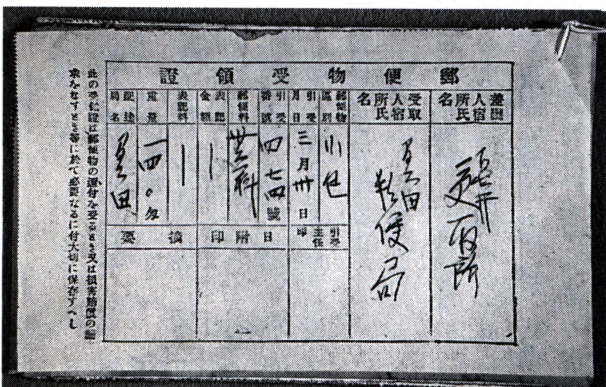 郵便物受領證
差出人宿所氏名
受取人宿所氏名
田郵便局
郵便物區別
小包
引受月日
三月卅日
引受番號
四七四號
郵便料
料
表記金額
｜
表記料
｜
重量
一四〇匁
配達局名
田
引受主任印
日附印
摘要
此の受領證は郵便物の還付を受るとき又は損害賠償の請
求をなすとき等に於て必要なるに付大切に保存すへし